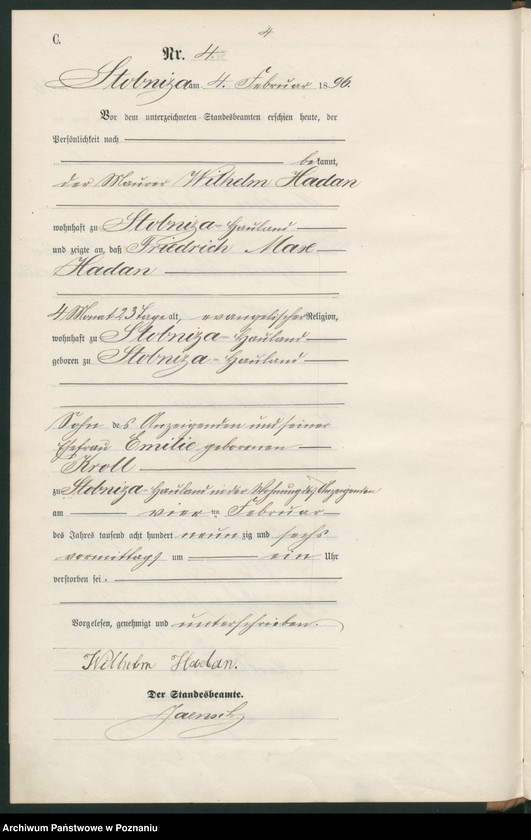 4
C.
Nr. 4.
Stobniza am 4. Februar 1896.
Vor dem unterzeichneten Standesbeamten erschien heute, der
Persönlichkeit nach
bekannt,
der Maurer Wilhelm Hadan
wohnhaft zu Stobniza-Hauland
und zeigte an, daß Friedrich Max
Hadan
4 Monat 23 Tage alt, evangelischer Religion,
wohnhaft zu Stobniza-Hauland
geboren zu Stobniza-Hauland
Sohn des Anzeigenden und seiner
Ehefrau Emilie geborenen
Kroll
zu Stobniza-Hauland in der Wohnung des Anzeigenden
am vierten Februar
des Jahres tausend acht hundert neunzig und sechs
vormittags um ein Uhr
verstorben sei.
Vorgelesen, genehmigt und unterschrieben.
Wilhelm Hadan.
Der Standesbeamte.
Jaensch
Archiwum Państwowe w Poznaniu